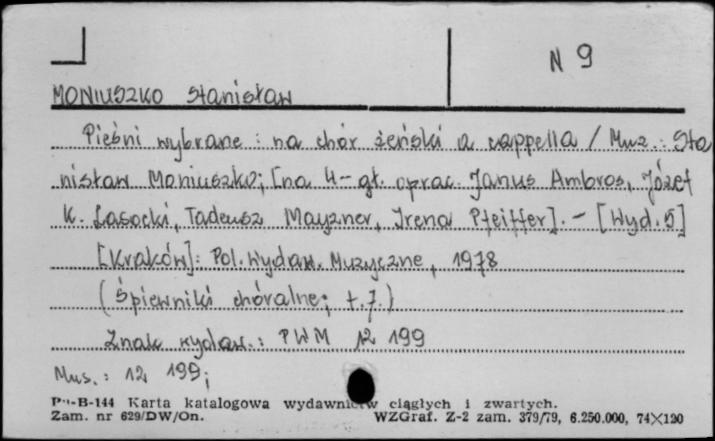 N 9
MONIUSZKO Stanisław
Pieśni wybrane : na chór żeński a cappella / Muz. : Sta
nisław Moniuszko; [na 4-gł. oprac. Janus Ambros, Józef
K. Lasocki, Tadeusz Mayzner, Irena Pfeiffer]. - [Wyd. 5]
[Kraków]: Pol. Wydaw. Muzyczne, 1978
(Śpiewniki chóralne; t. 7.)
Znak wydaw. : PWM 12 199
Mus. : 12 199;
Pu-B-144 Karta katalogowa wydawnictw ciągłych i zwartych.
Zam. nr 629/DW/On. WZGraf. Z-2 zam. 379/79, 6.250.000, 74×120